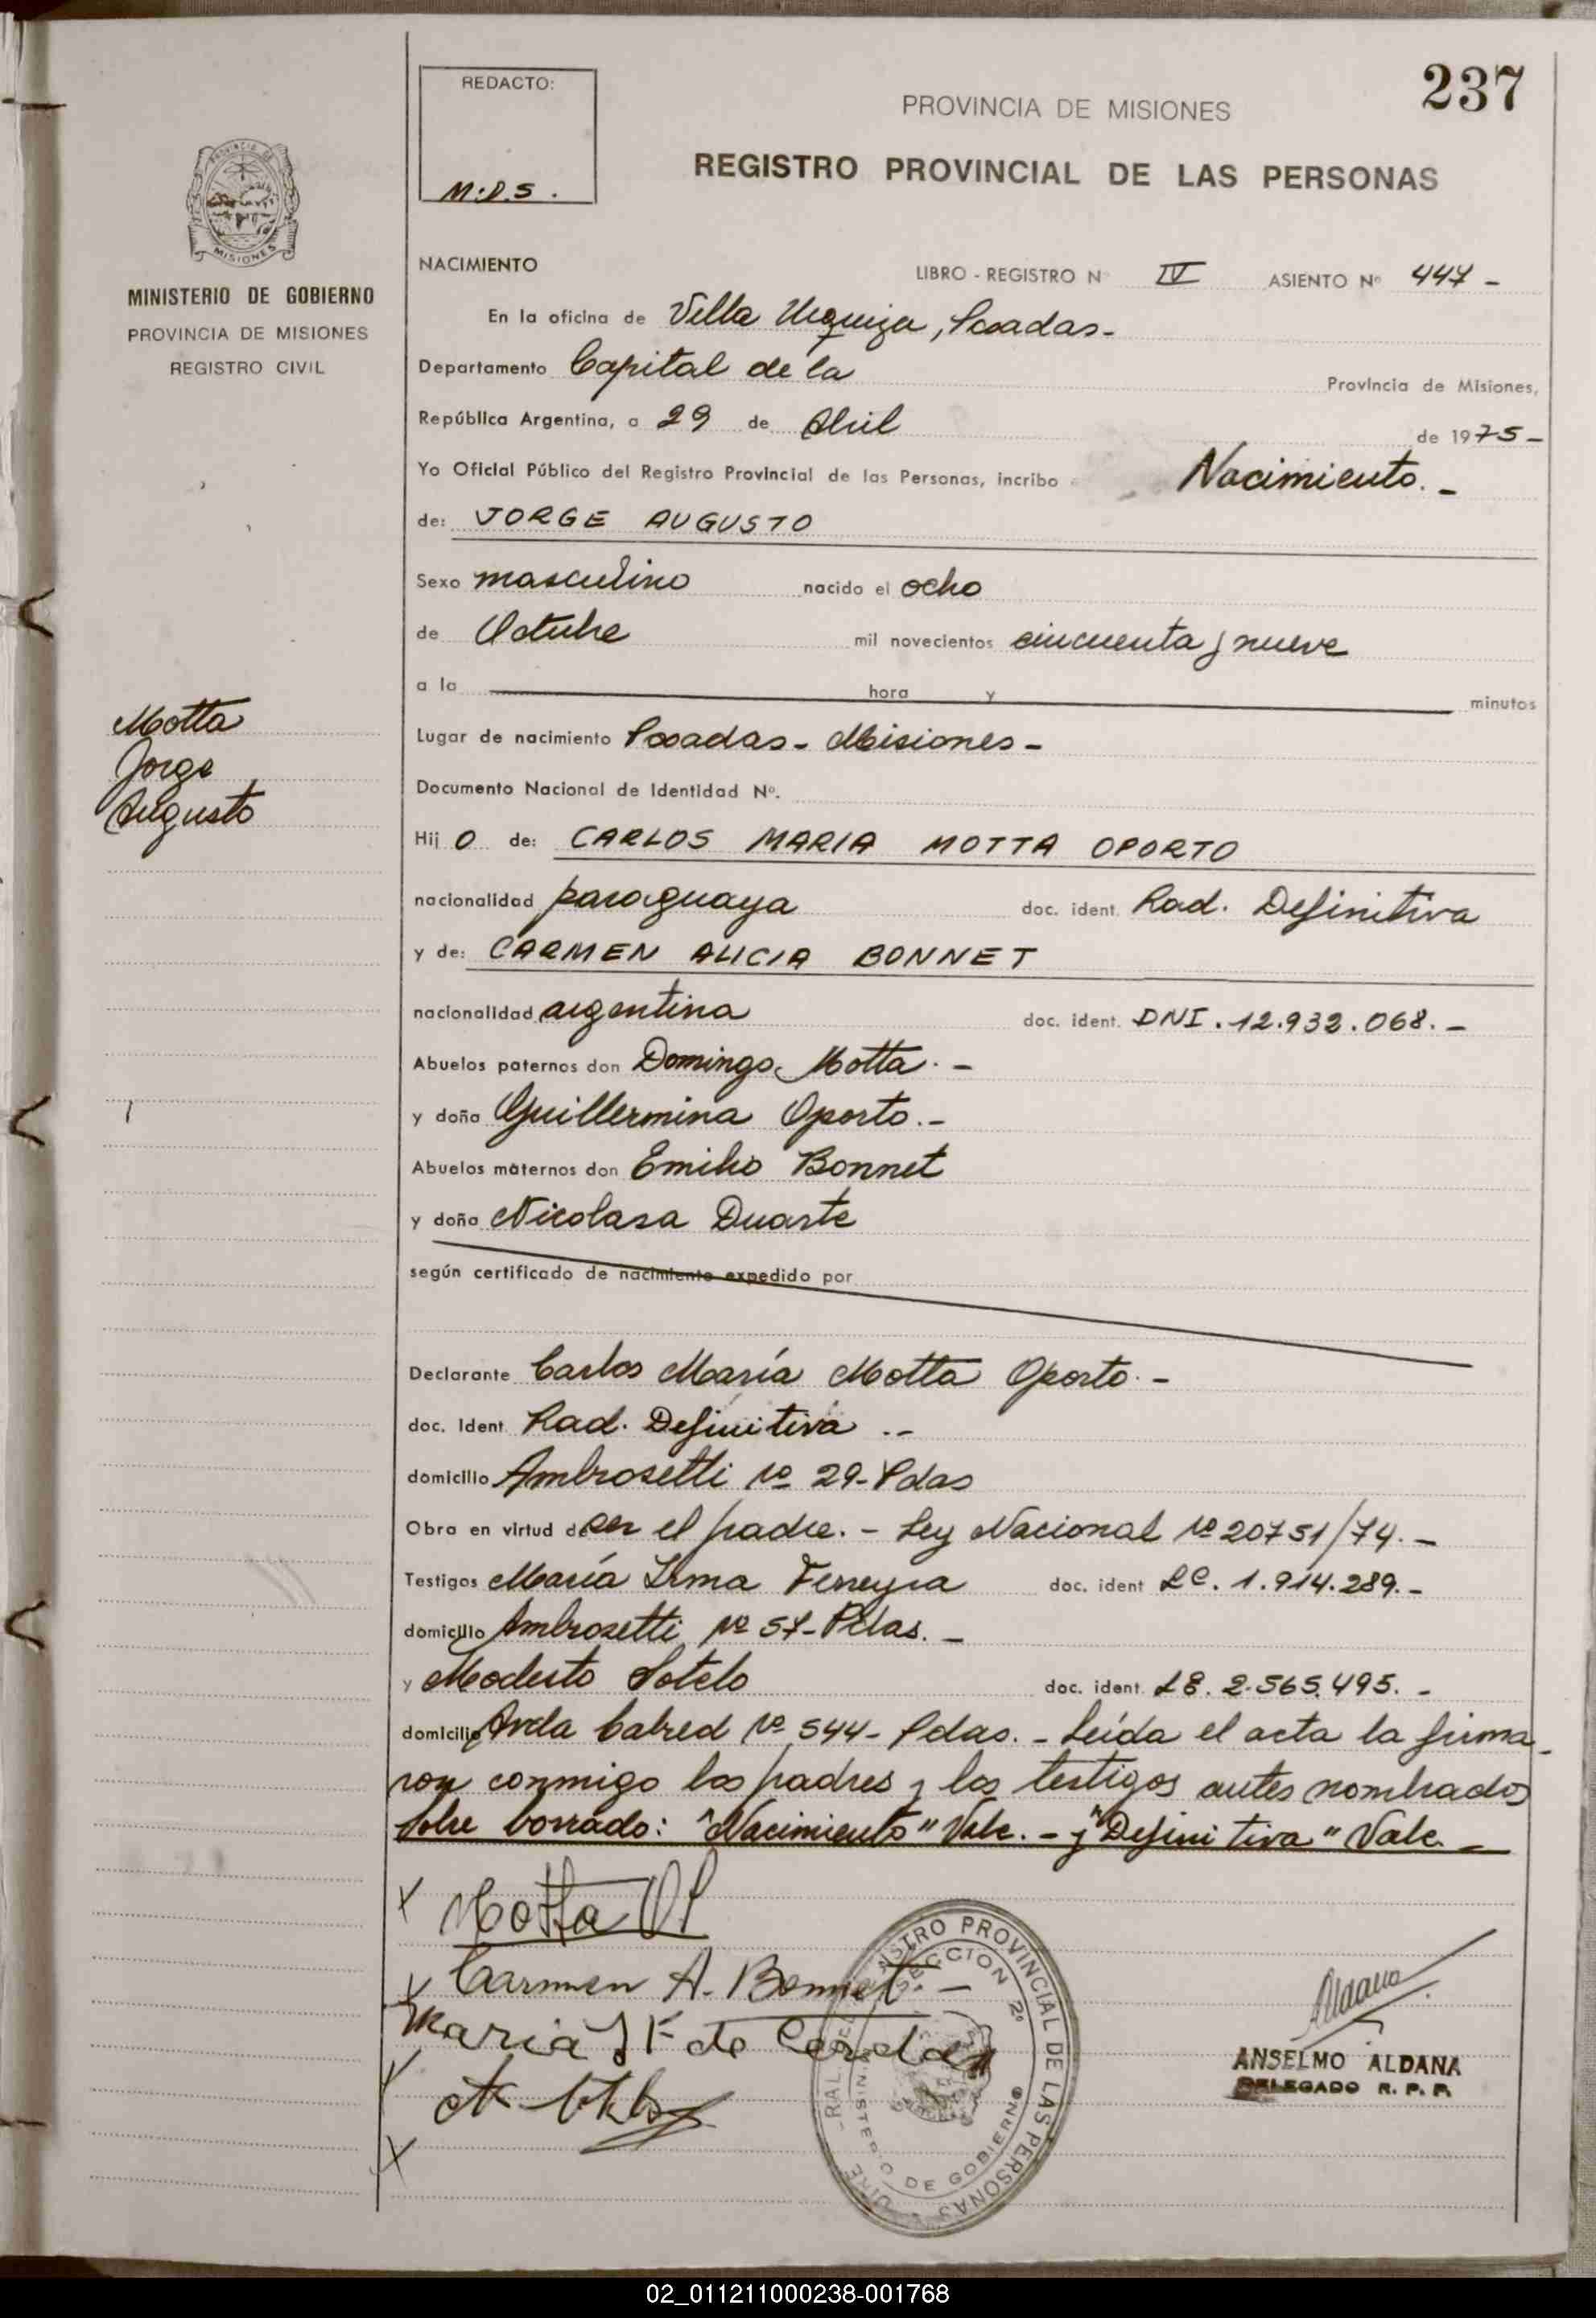 REDACTO:
M.D.S.
237
PROVINCIA DE MISIONES
REGISTRO PROVINCIAL DE LAS PERSONAS
PROVINCIA DE
MISIONES
MINISTERIO DE GOBIERNO
PROVINCIA DE MISIONES
REGISTRO CIVIL
NACIMIENTO
LIBRO - REGISTRO Nº IV ASIENTO Nº 447 -
En la oficina de Villa Urquiza, Posadas-
Departamento Capital de la Provincia de Misiones,
República Argentina, a 29 de Abril de 1975-
Yo Oficial Público del Registro Provincial de las Personas, incribo Nacimiento.-
de: JORGE AUGUSTO
Sexo masculino nacido el ocho
de Octubre mil novecientos cincuenta y nueve
a la hora y minutos
Motta
Jorge
Augusto
Lugar de nacimiento Posadas- Misiones-
Documento Nacional de Identidad Nº.
Hij o de: CARLOS MARIA MOTTA OPORTO
nacionalidad paraguaya doc. ident. Rad. Definitiva
y de: CARMEN ALICIA BONNET
nacionalidad argentina doc. ident. DNI. 12.932.068.-
Abuelos paternos don Domingo Motta.-
y doña Guillermina Oporto.-
Abuelos maternos don Emilio Bonnet
y doña Nicolasa Duarte
según certificado de nacimiento expedido por
Declarante Carlos María Motta Oporto.-
doc. Ident. Rad. Definitiva .-
domicilio Ambrosetti Nº 29-Pdas
Obra en virtud de ser el padre.- Ley Nacional Nº 20751/74.-
Testigos María Irma Ferreyra doc. ident LC. 1.914.289.-
domicilio Ambrosetti Nº 57-Pdas.-
y Modesto Sotelo doc. ident. LE. 2.565.495.-
domicilio Avda Cabred Nº 544- Pdas.- Leída el acta la firma-
ron conmigo los padres y los testigos antes nombrados
Sobre borrado: "Nacimiento" Vale.- y "Definitiva" Vale.-
Motta
Carmen A. Bonnet.-
Maria I F de
REGISTRO PROVINCIAL DE LAS PERSONAS
SECCION 2º
MINISTERIO DE GOBIERNO
Aldana
ANSELMO ALDANA
DELEGADO R. P. P.
02_011211000238-001768